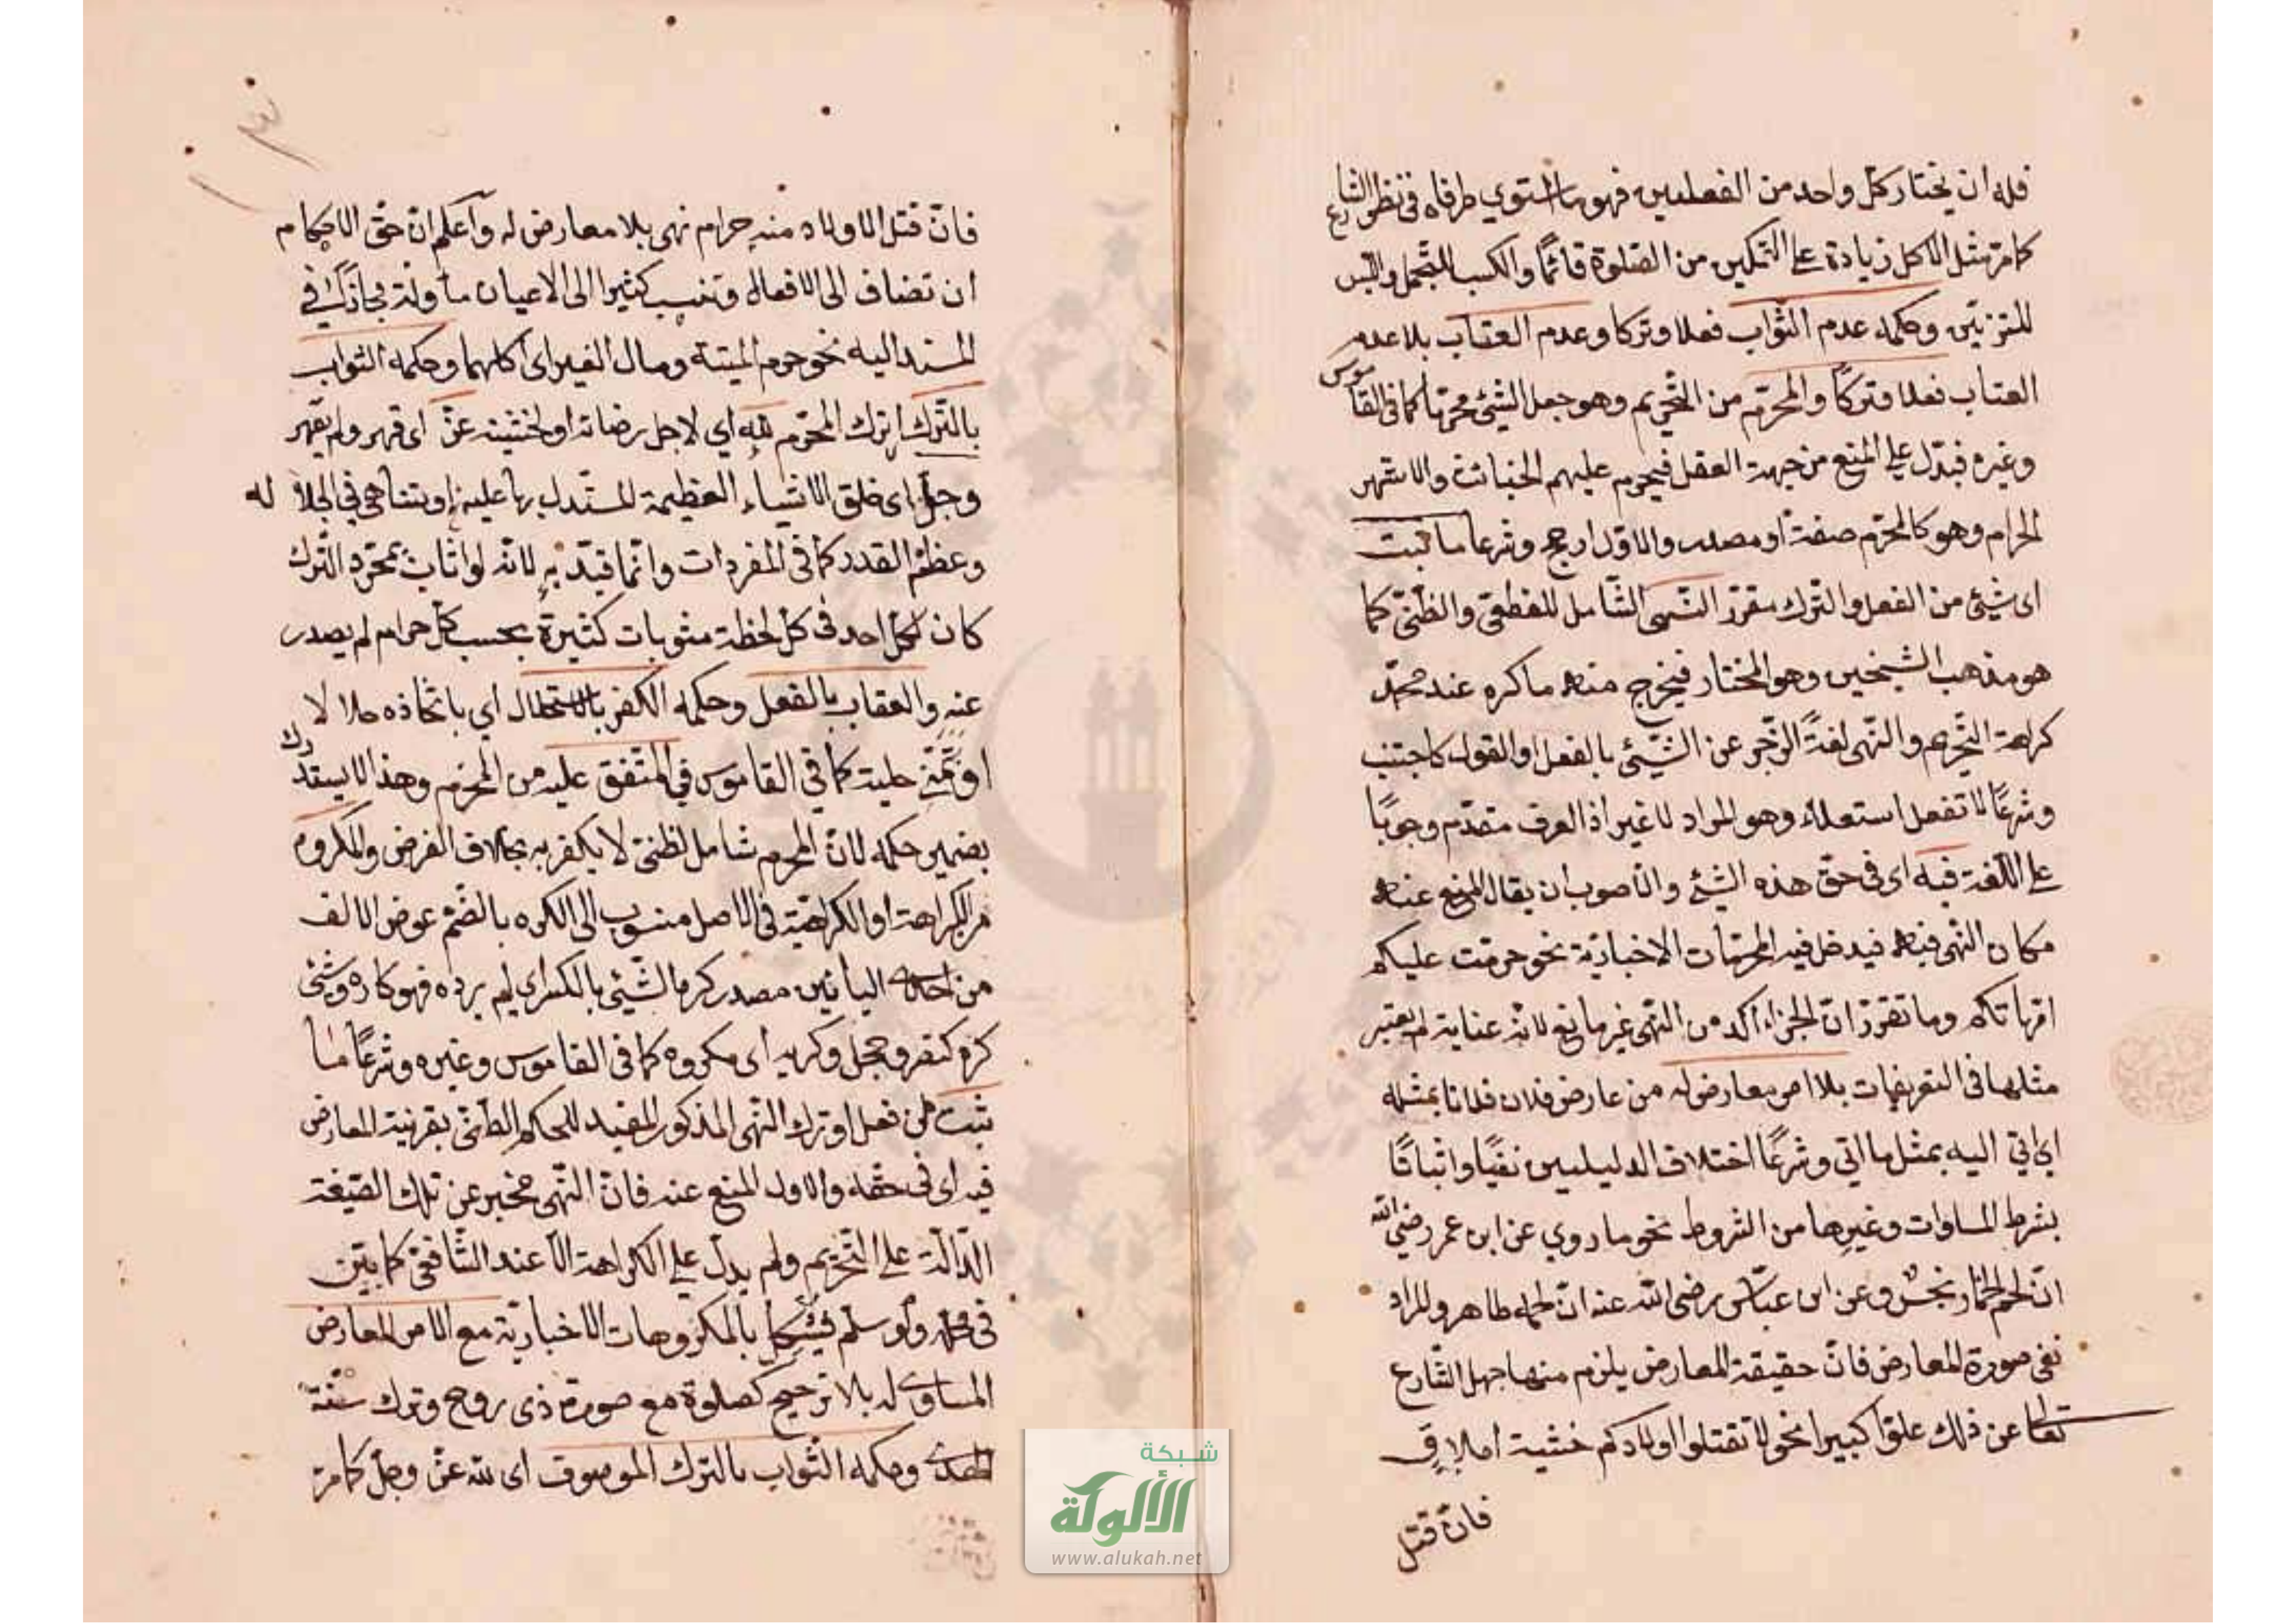 فله ان يختار كل واحد من الفعلين فهو ما استوي طرفاه في نظر الشارع
كما مر مثل الاكل زيادة على التمكين من الصلوة قائمًا والكسب للتجمل واللبس
للتزين وحكمه عدم الثواب فعلا وتركا وعدم العقاب بلا عدم
العتاب فعلا وتركًا والمحرّم من التحريم وهو جعل الشئ محرّمًا كما في القاموس
وغيره فيدّل على المنع من جهة العقل فيحرم عليهم الخبائث والاشهر
الحرام وهو كالمحرّم صفة او مصدر والاوّل ارجح وشرعا ما ثبت
اى شيئ من الفعل والترك مقرّر النّهى الشّامل للقطعيّ والظّنيّ كما
هو مذهب الشيخين وهو المختار فيخرج منه ما كره عند محمّد
كراهة التّحريم والنّهى لغةً الزّجر عن الشّيئ بالفعل او القول كاجتنب
وشرعًا لا تفعل استعلاء وهو المراد لا غير اذ العرف مقدّم وجوبًا
على اللّغة فيه اى في حقّ هذه الشيئ والاصوب ان يقال المنع عنه
مكان النّهى فيه فيدخل فيه المحرّمات الاخباريّة نحو حرمت عليكم
امّهاتكم وما تقرّر انّ الخبر اكد من النّهى غير مانع لانّه عناية لم يعتبر
مثلها في التعريفات بلا امر معارض له من عارض فلان فلانا بمثله
اى اتي اليه بمثل ما اتي وشرعًا اختلاف الدليليين نفيًا واثباتًا
بشرط المساوات وغيرها من الشروط نحو ما روي عن ابن عمر رضي الله
انّ لحم الحمار نجسٌ وعن ابن عبّاس رضى الله عنه انّ لحمه طاهر والمراد
نفى صورة المعارض فانّ حقيقة المعارض يلزم منها جهل الشّارع
تعالى عن ذلك علوّا كبيرا نحو لا تقتلوا اولادكم خشية املاقٍ
فانّ قتل
فانّ قتل الاولاد منه حرام نهى بلا معارض له واعلم انّ حقّ الاحكام
ان تضاف الى الافعال وتنسب كثيرا الى الاعيان مأولة بمجاز في
المسند اليه نحو حرم الميتة ومال الغير اى اكلهما وحكمه الثواب
بالتّرك اى ترك المحرّم لله اي لاجل رضائه او لخشيته عزّ اى قهر ولم يقهر
وجلّ اى خلق الاشياء العظيمة المستدل بها عليه او يتناهى في الجلالة
وعظم القدر كما في المفردات وانّما قيّد به لانّه لو اثاب بمجرّد التّرك
كان لكلّ احد في كلّ لحظة مثوبات كثيرة بحسب كلّ حرام لم يصدر
عنه والعقاب بالفعل وحكمه الكفر بالاستحلال اي باتخاذه حلالا
او تمنّى حليته كما في القاموس في المتّفق عليه من المحرّم وهذا لا يستدرك
بضمير حكمه لانّ المحرم شامل لظنىّ لا يكفر به بخلاف الفرض والمكروه
من الكراهة او الكراهيّة في الاصل منسوب الى الكره بالضّم عوض الالف
من احدى اليائين مصدر كره الشّيئ بالكسر اى لم يرده فهو كاره وشئ
كره كنصر وخجل وكريه اى مكروه كما في القاموس وغيره وشرعًا ما
ثبت من فعل او ترك النّهى المذكور المفيد للحكم الظنّى بقرينة المعارض
فيه اى في حقّه والاولى المنع عنه فانّ النّهى مخبر عن تلك الصّيغة
الدّالّة على التّحريم ولم يدلّ على الكراهة الاّ عند الشّافعىّ كما بيّن
في محله ولو سلّم فيشكل بالمكروهات الاخباريّة مع الامر المعارض
المساوى له بلا ترجيح كصلوة مع صورة ذى روح وترك سنّة
الهدى وحكمه الثّواب بالترك الموصوف اى لله عزّ وجلّ كما مرّ
شبكة
الألوكة
www.alukah.net